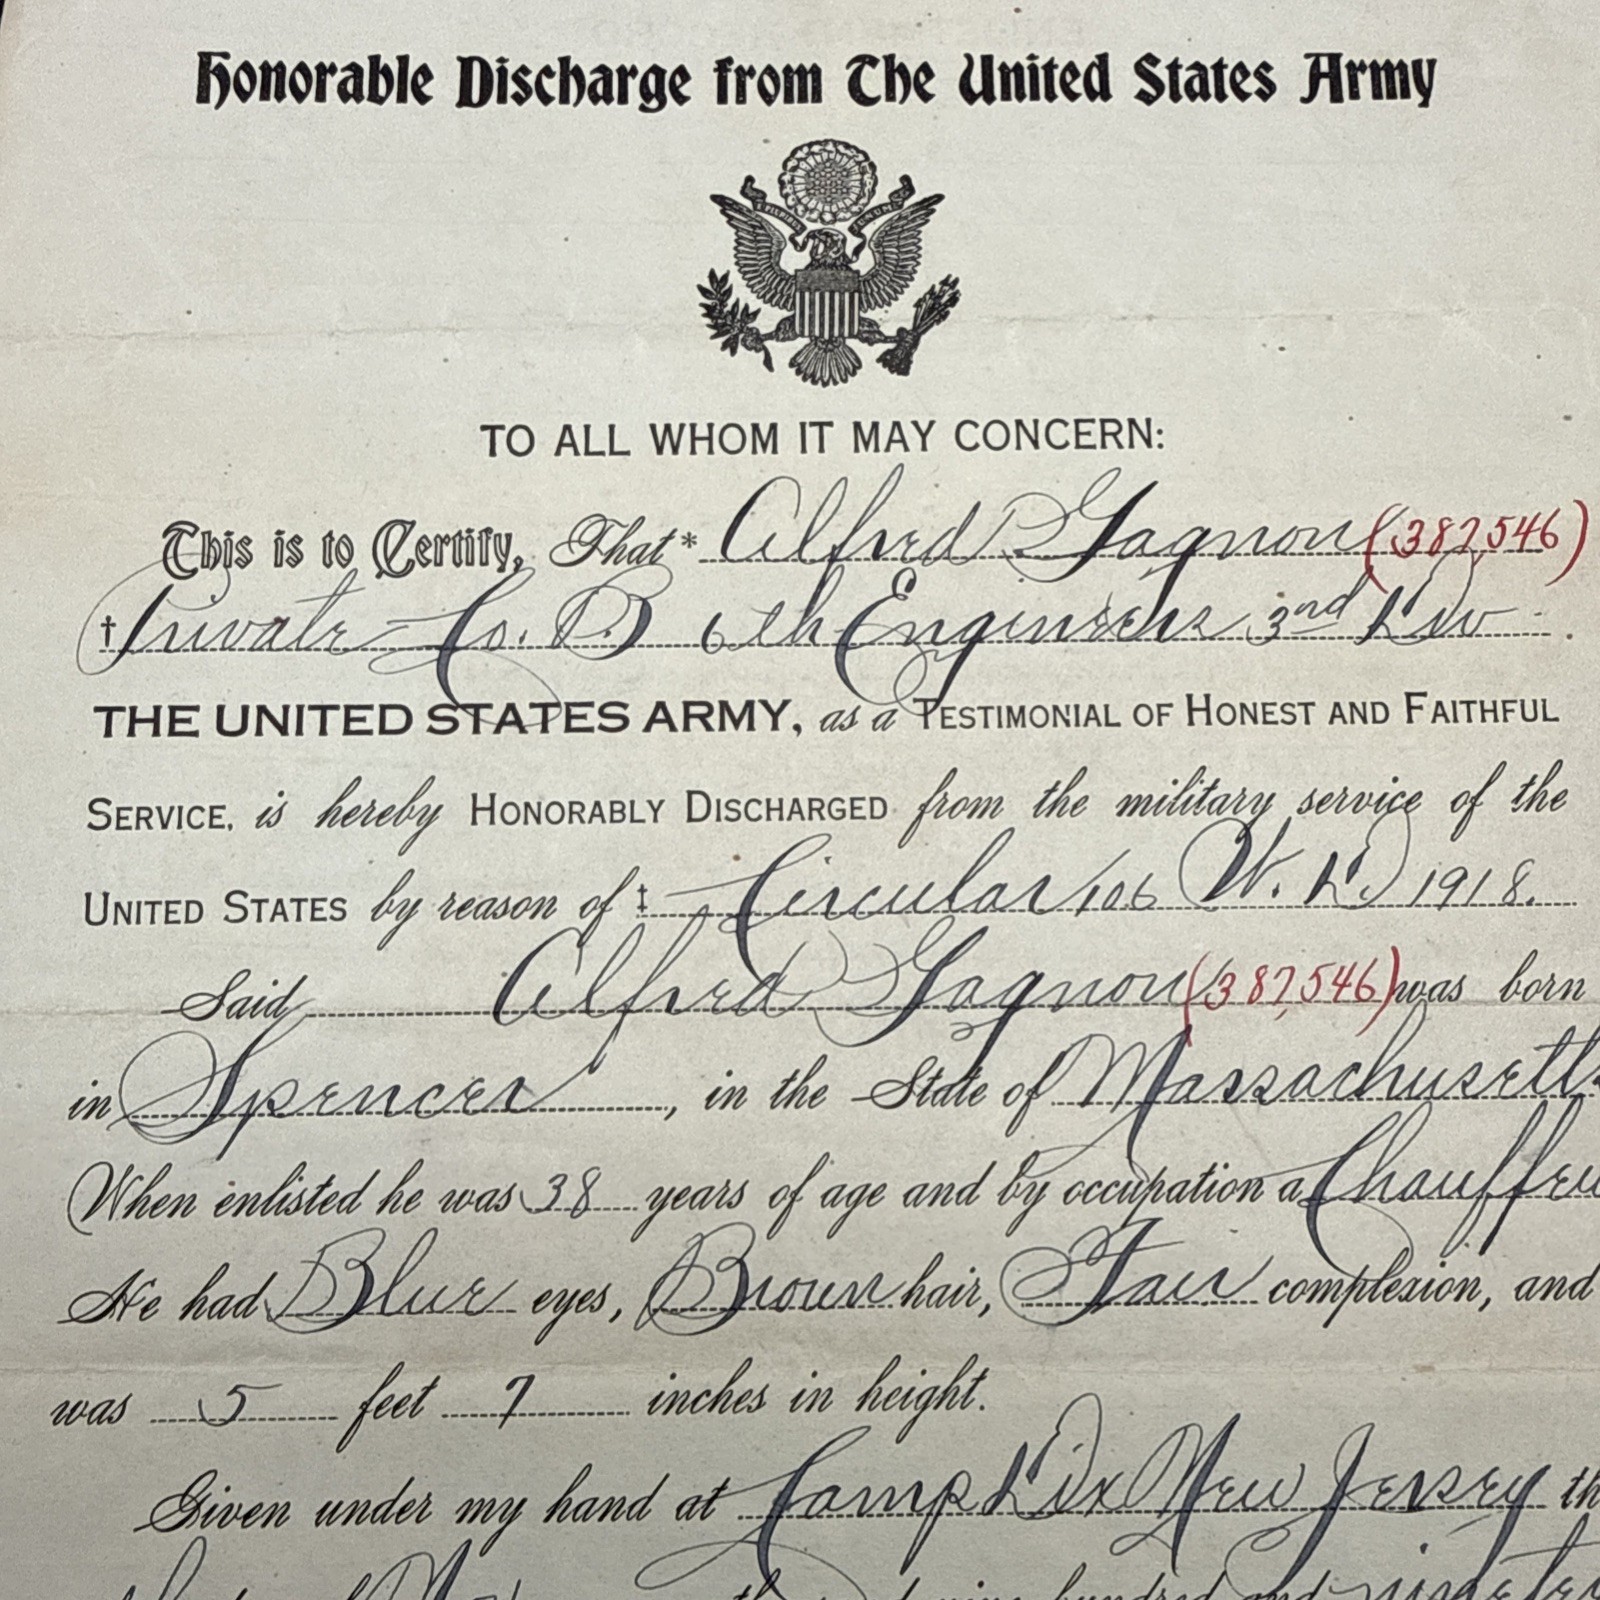 Honorable Discharge from The United States Army
TO ALL WHOM IT MAY CONCERN:
This is to Certify, That* Alfred Gagnon (387,546)
†Private Co. B 6th Engineers 3rd Div.
THE UNITED STATES ARMY, as a TESTIMONIAL OF HONEST AND FAITHFUL
SERVICE, is hereby HONORABLY DISCHARGED from the military service of the
UNITED STATES by reason of ‡ Circular 106 W. D. 1918.
Said Alfred Gagnon (387,546) was born
in Spencer, in the State of Massachusetts
When enlisted he was 38 years of age and by occupation a Chauffeu
He had Blue eyes, Brown hair, Fair complexion, and
was 5 feet 7 inches in height.
Given under my hand at Camp Dix New Jersey th
nine hundred and ninetee